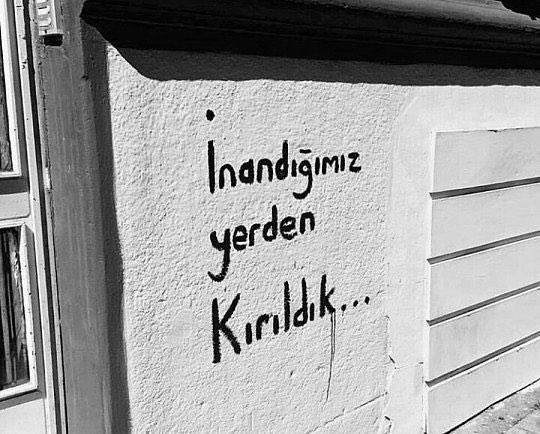 İnandığımız
yerden
Kırıldık...